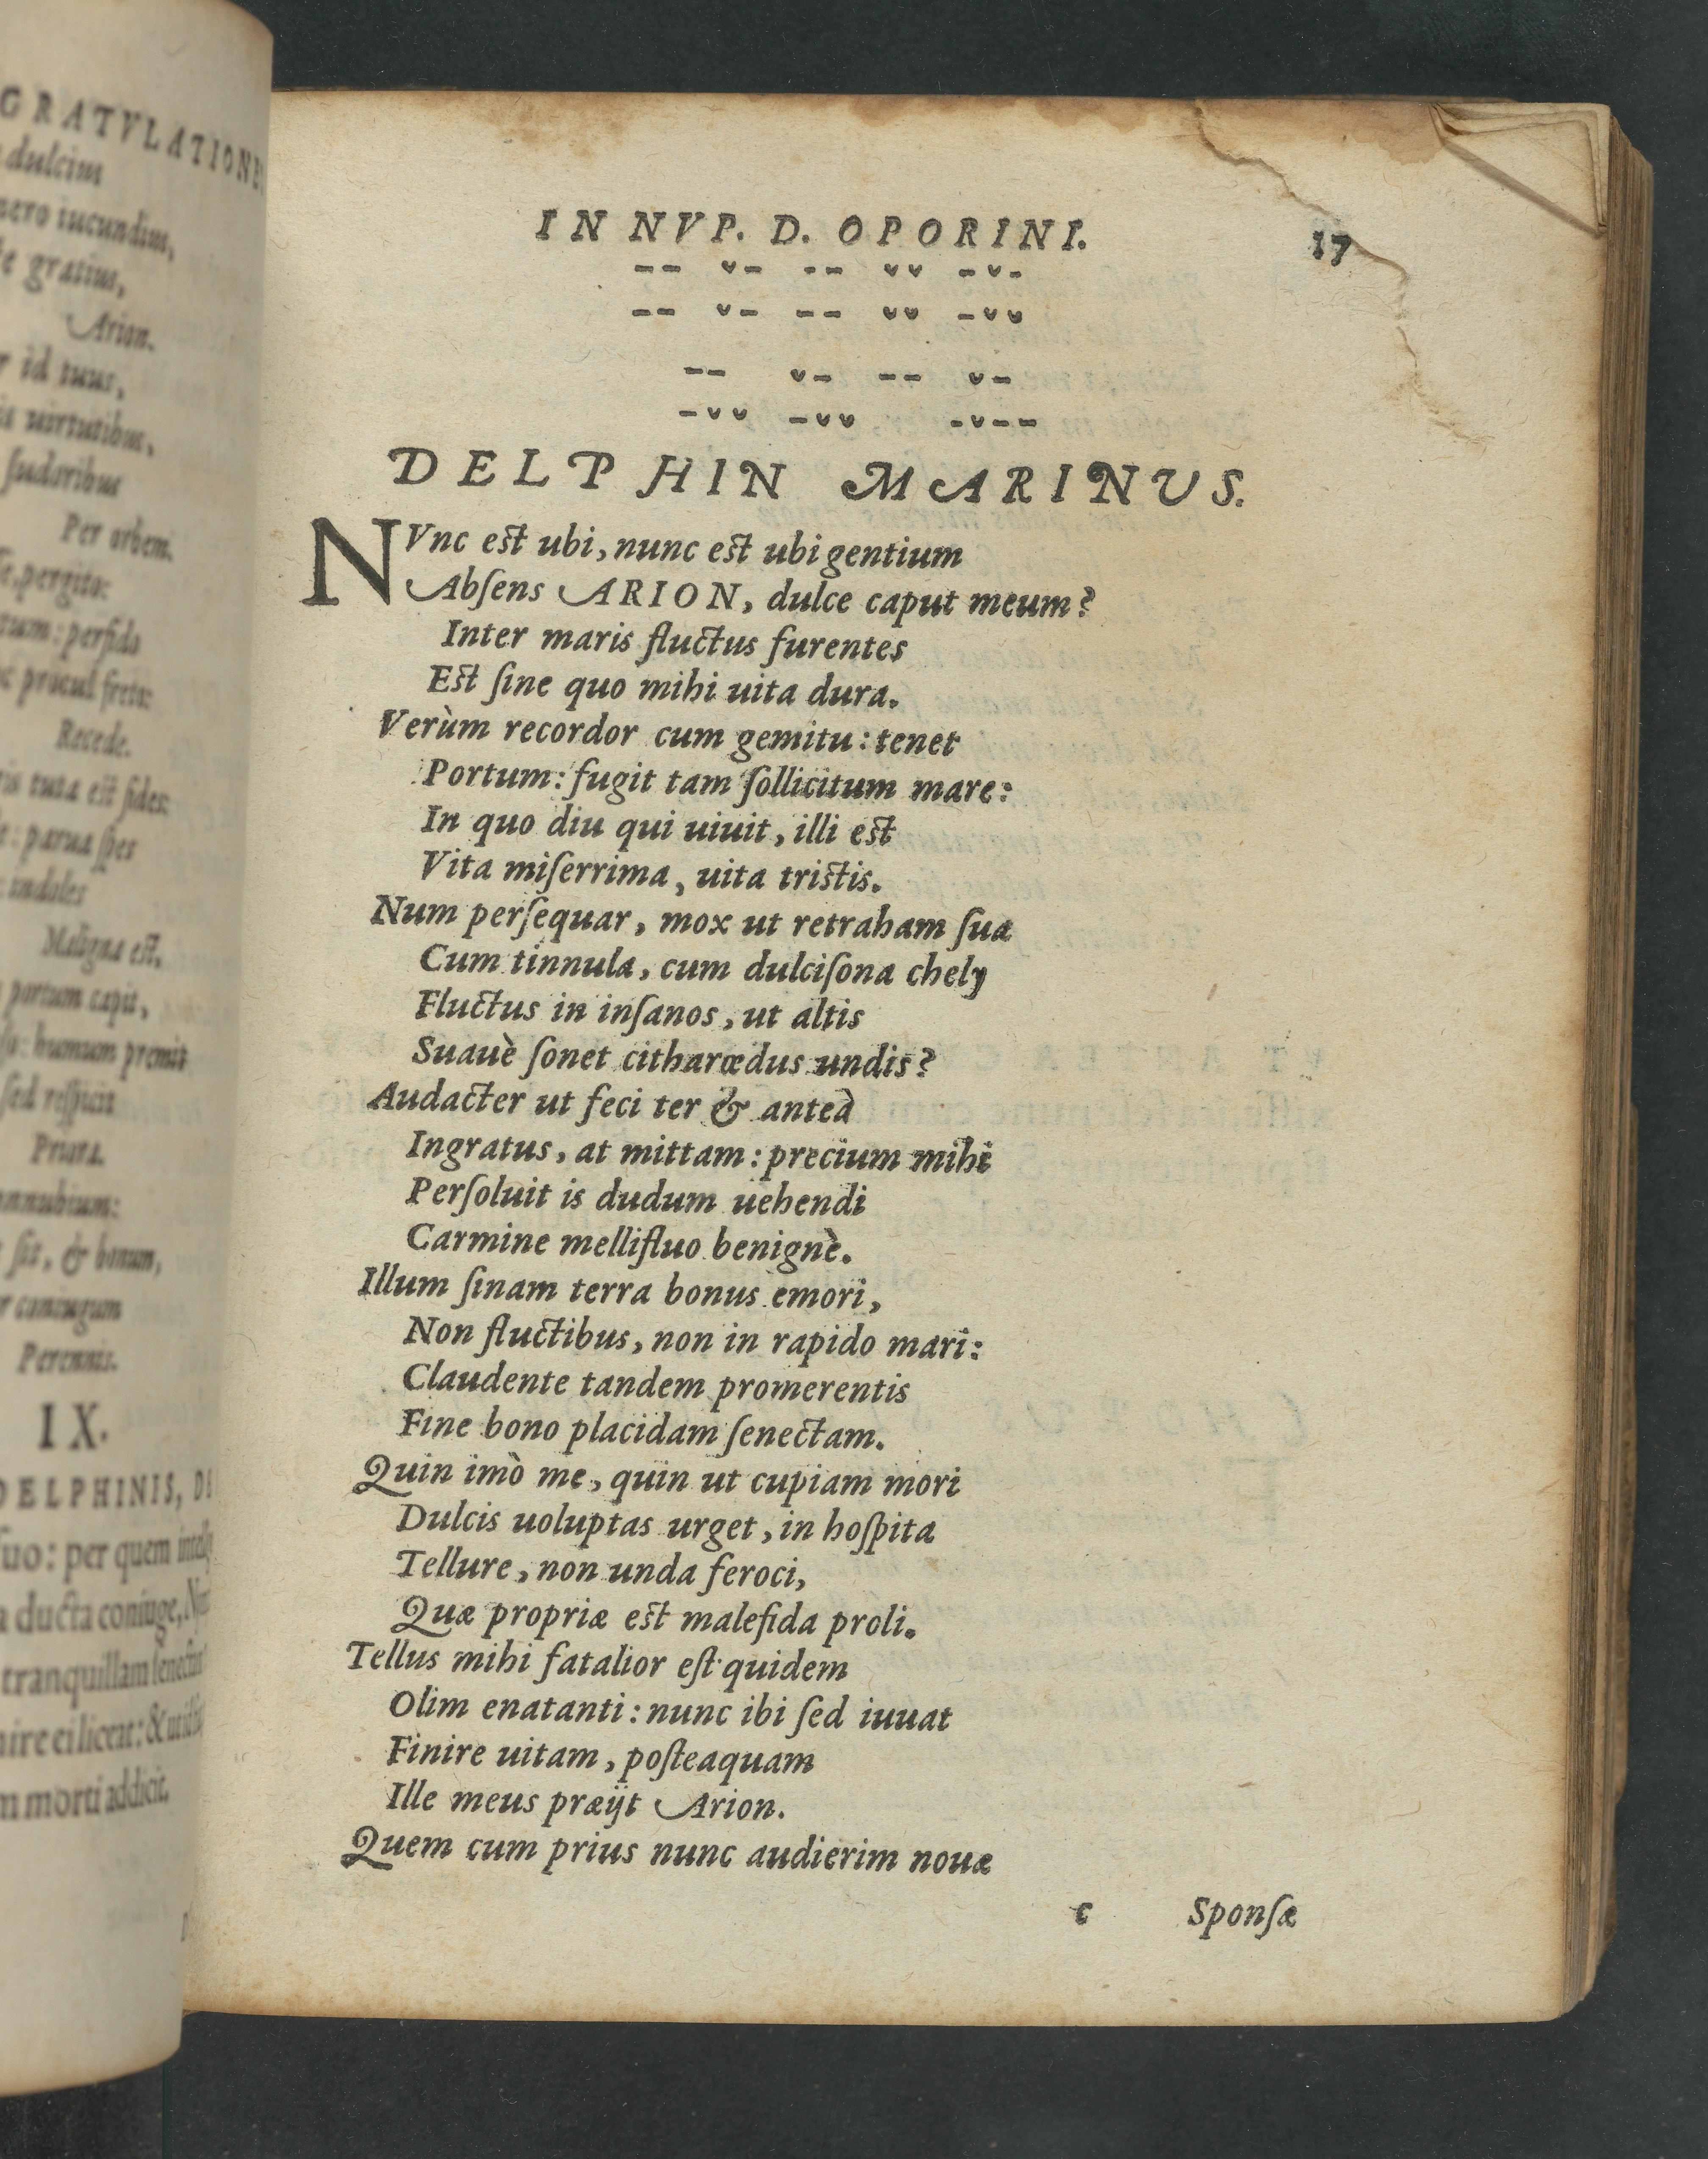 GRATVLATIONE
dulcius
uero iucundius,
gratius,
Arion.
id tuus,
uirtutibus,
sudoribus
Per orbem.
pergito:
perfida
procul freta:
Recede.
tuta est fides:
parua spes
undales
Maligna est.
portum capit,
humum premit
sed respicit
Priora.
connubium:
sit, & bonum,
coniugum
Perennis.
IX.
DELPHINIS, DE
suo: per quem
ducta coniuge,
tranquillam
ei liceat: &
morti addicit.
IN NVP. D. OPORINI. 17
-- ᴗ- -- ᴗᴗ -ᴗ-
-- ᴗ- -- ᴗᴗ -ᴗᴗ
-- ᴗ- -- ᴗ-
-ᴗᴗ -ᴗᴗ -ᴗ--
DELPHIN MARINUS.
NVnc est ubi, nunc est ubi gentium
Absens ARION, dulce caput meum?
Inter maris fluctus furentes
Est sine quo mihi uita dura.
Verùm recordor cum gemitu: tenet
Portum: fugit tam sollicitum mare:
In quo diu qui uiuit, illi est
Vita miserrima, uita tristis.
Num persequar, mox ut retraham sua
Cum tinnula, cum dulcisona chely
Fluctus in insanos, ut altis
Suauè sonet citharœdus undis?
Audacter ut feci ter & anteà
Ingratus, at mittam: precium mihi
Persoluit is dudum uehendi
Carmine mellifluo benignè.
Illum sinam terra bonus emori,
Non fluctibus, non in rapido mari:
Claudente tandem promerentis
Fine bono placidam senectam.
Quin imò me, quin ut cupiam mori
Dulcis uoluptas urget, in hospita
Tellure, non unda feroci,
Quæ propriæ est malefida proli.
Tellus mihi fatalior est quidem
Olim enatanti: nunc ibi sed iuuat
Finire uitam, posteaquam
Ille meus præijt Arion.
Quem cum prius nunc audierim nouæ
c Sponsæ